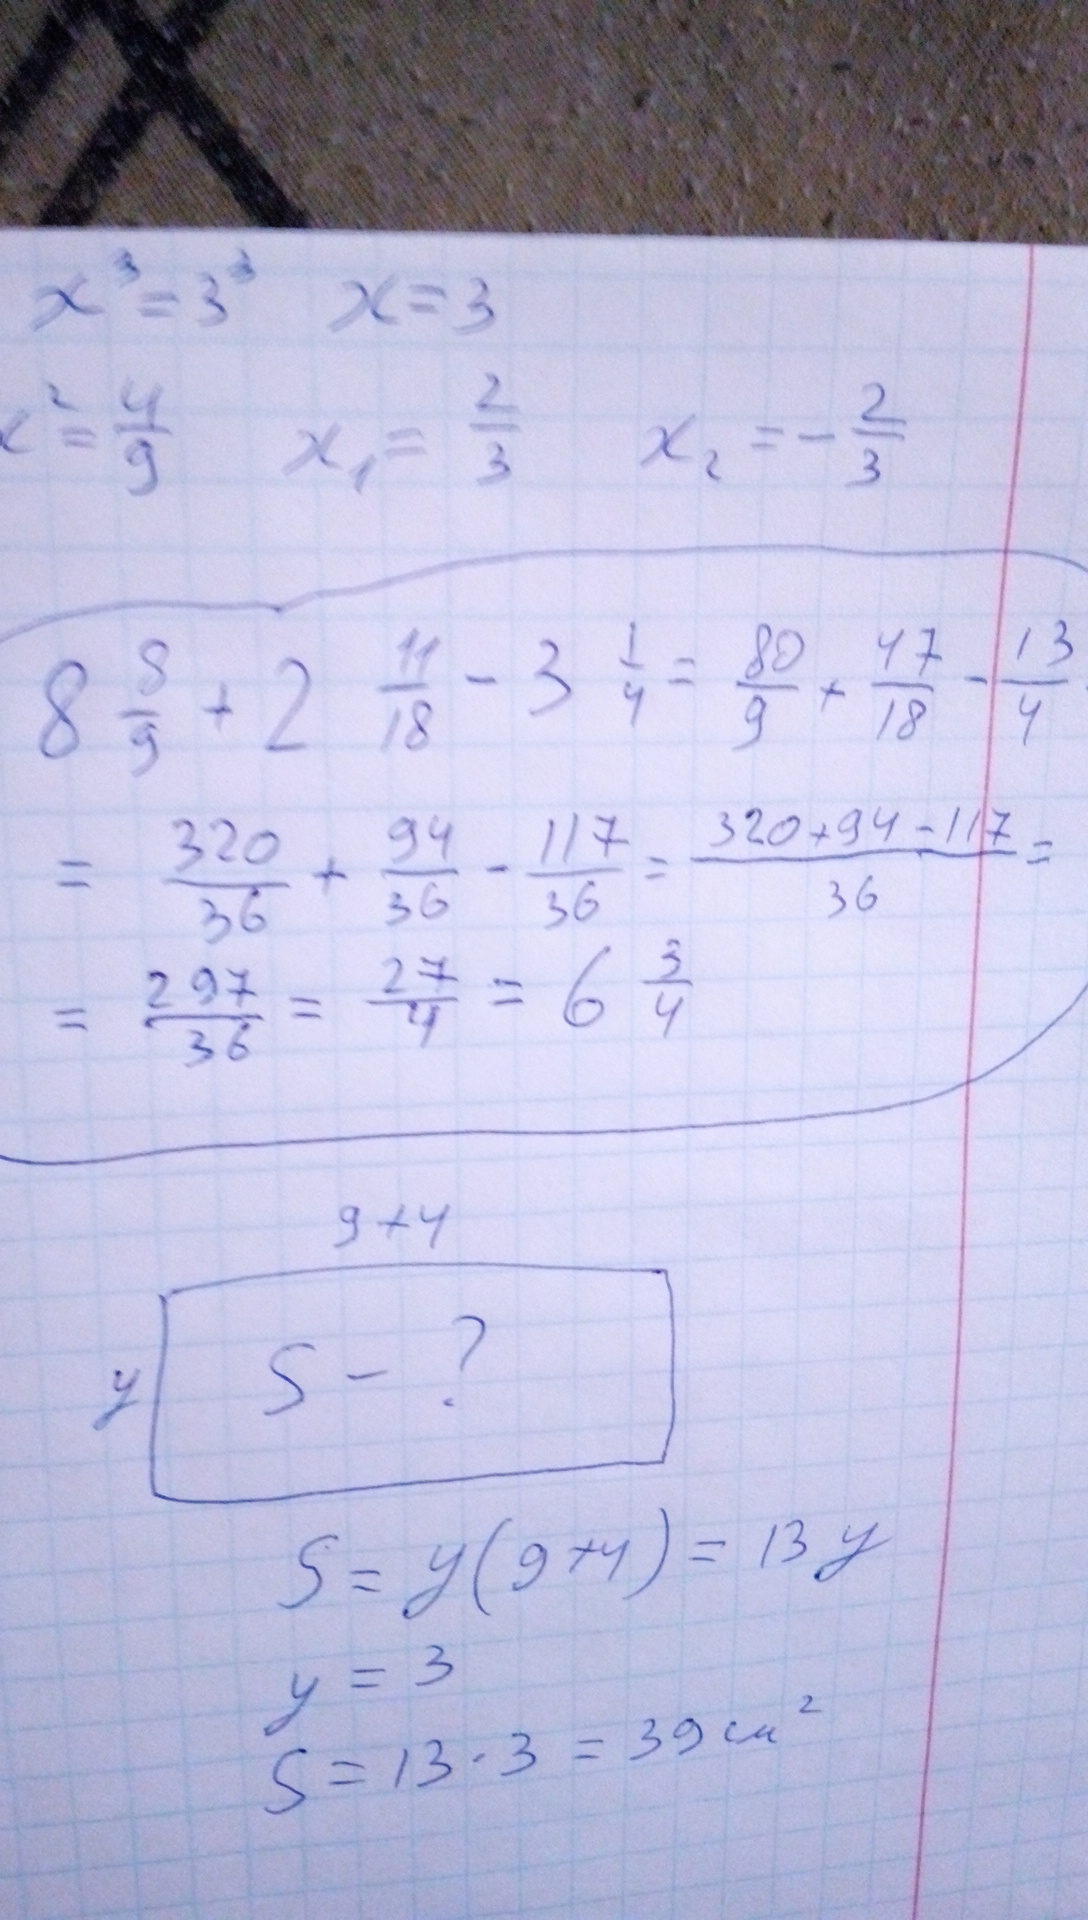 x³ = 3³ x = 3
x² = 4/9 x₁ = 2/3 x₂ = - 2/3
8 8/9 + 2 11/18 - 3 1/4 = 80/9 + 47/18 - 13/4
= 320/36 + 94/36 - 117/36 = (320+94-117)/36 =
= 297/36 = 27/4 = 6 3/4
9+4
y
S - ?
S = y(9+4) = 13y
y = 3
S = 13·3 = 39 см²